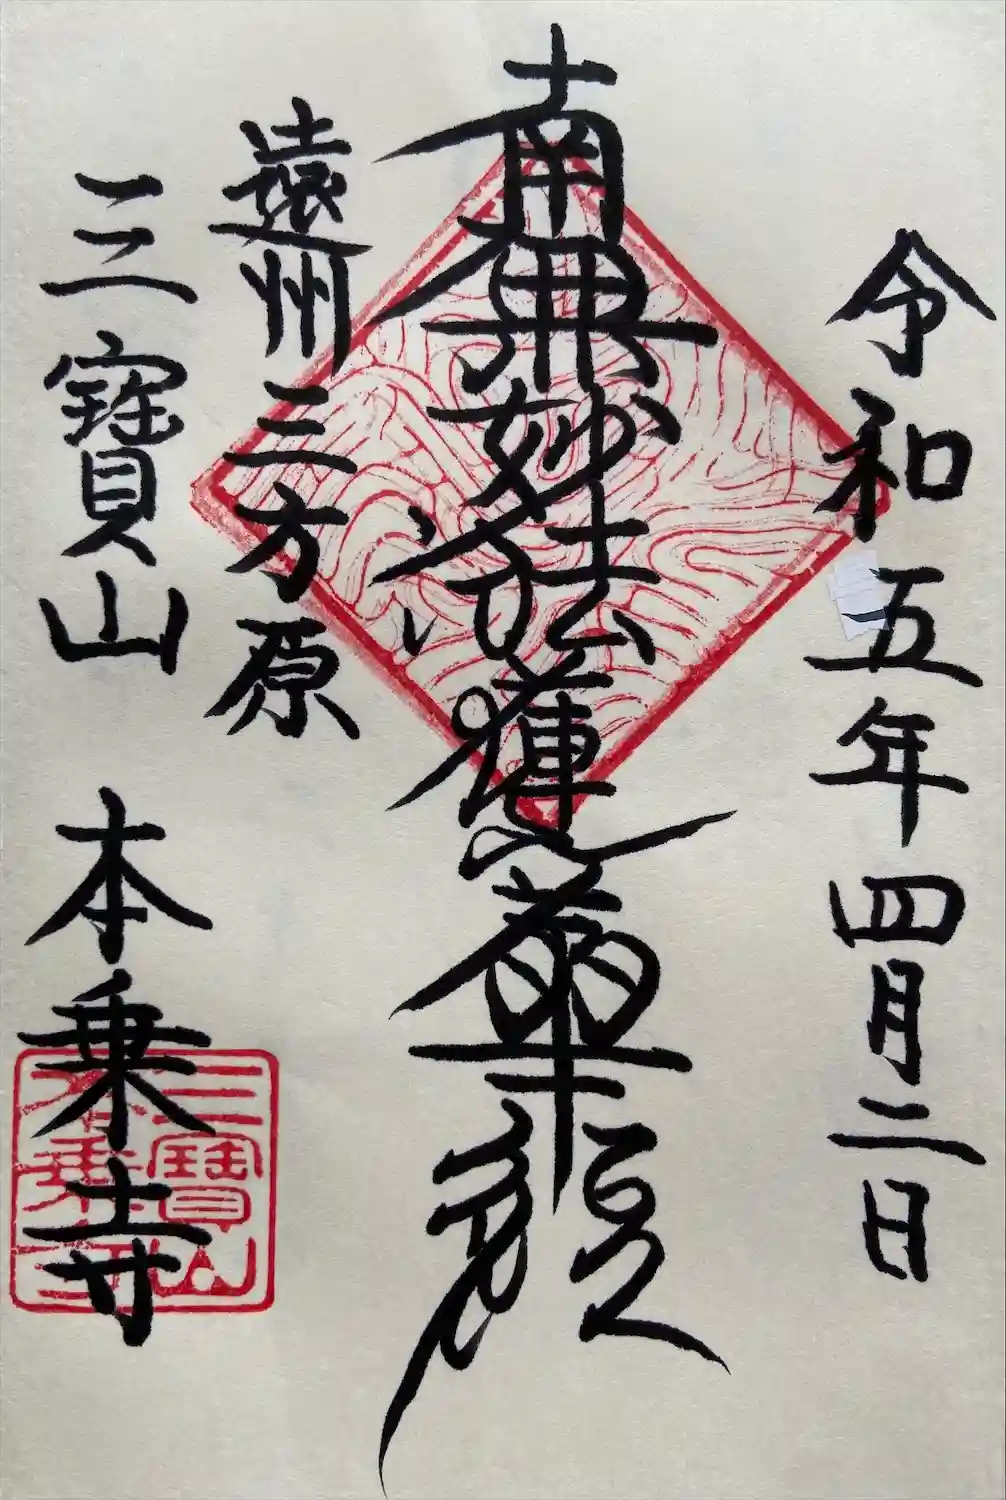 令和五年四月二日
南無妙法蓮華経
遠州三方原
三寶山 本乗寺
三寶山
本乗寺